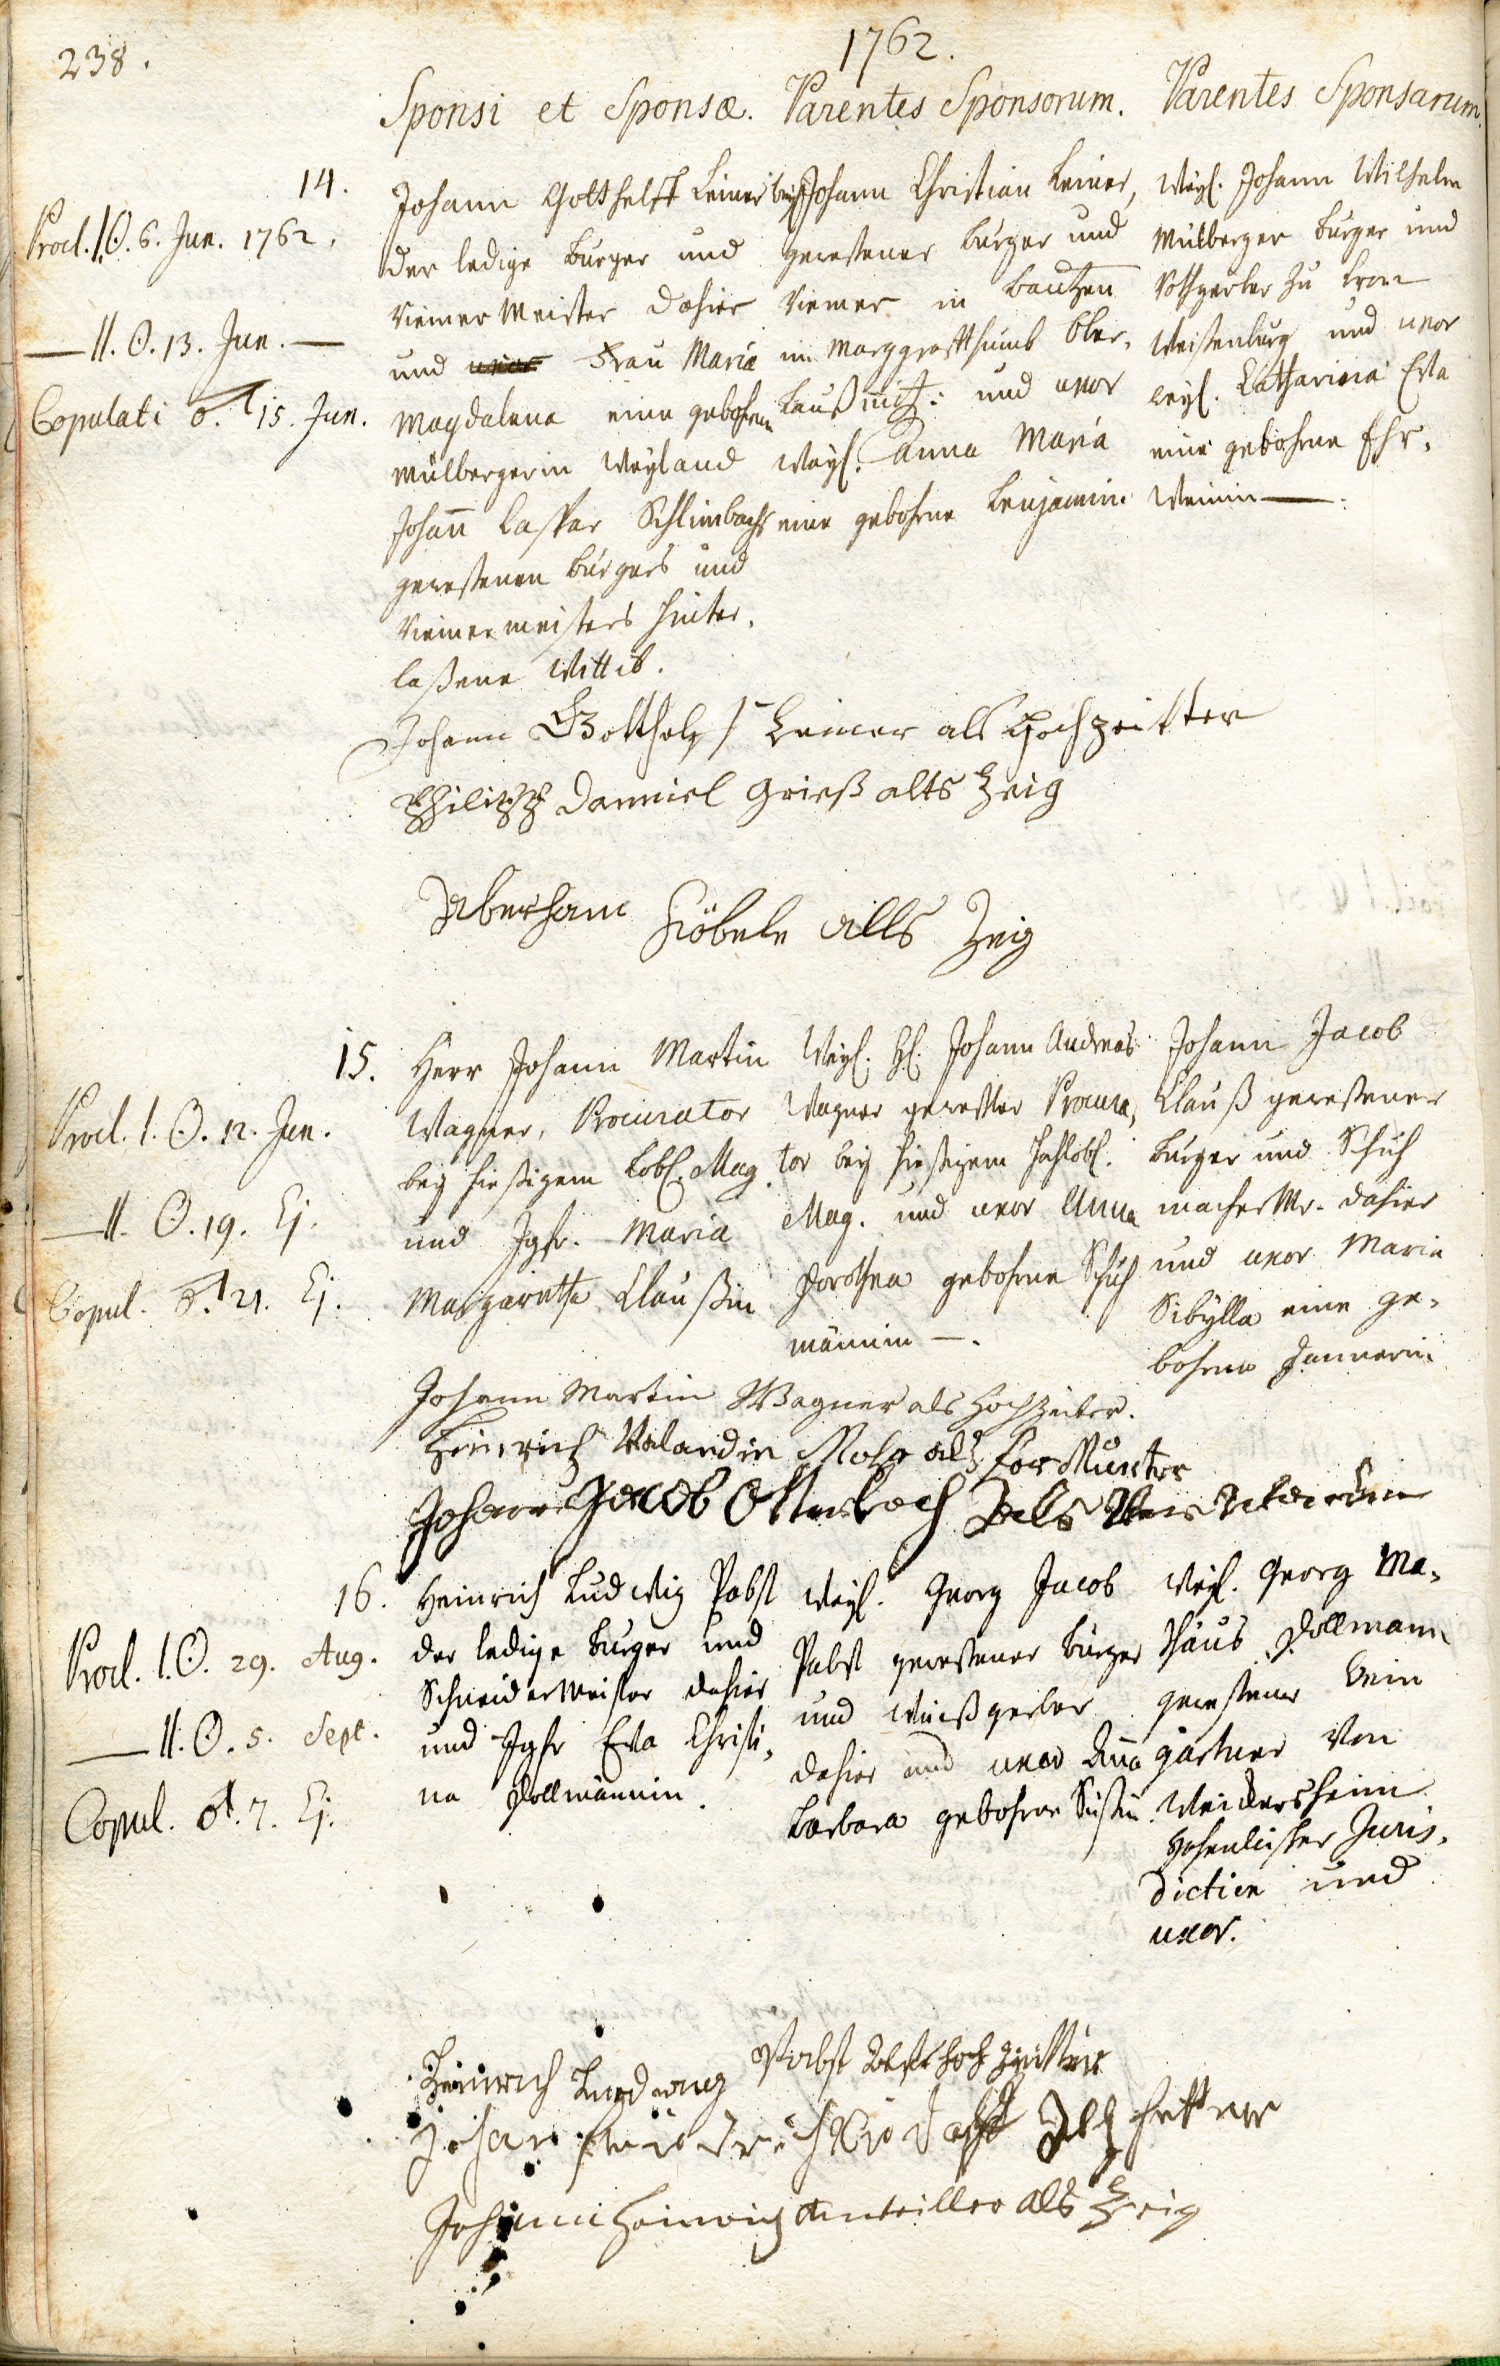 238.
1762.
Sponsi et Sponsæ. Parentes Sponsorum. Parentes Sponsarum.
14.
Procl. I. ☉. 6. Jun. 1762.
— II. ☉. 13. Jun. —
Copulati ♂. 15. Jun.
Johann Gotthelff Leiner
der ledige Burger und
Riemer Meister dahier
und Frau Maria
Magdalena eine gebohrne
Mülbergerin Weyland
Johañ Caspar Schlimbachs
gewesenen Burgers und
Riemermeisters hinter,
laßene Wittib.
Johann Christian Leiner,
gewesener Burger und
Riemer in Bautzen
im Marggraffthumb Ober,
Laußnitz: und uxor
Weyl. Anna Maria
eine gebohrne Benjamin.
Weyl. Johann Wilhelm
Mülberger Burger und
Rothgerber zu Cron
Weissenburg und uxor
weyl. Catharina Eva
eine gebohrne Ehr,
Weinin —.
Johann Gotthelf Leiner als Hochzeitter
Philipp Danniel Grieß alts Zeig
Abersham Höbele alls Zeig
15.
Procl. I. ☉. 12. Jun.
— II. ☉. 19. Ej.
Copul. ♂. 21. Ej.
Herr Johann Martin
Wagner, Procurator
bey hiesigem Löbl. Mag.
und Jgfr. Maria
Margaretha Claußin
Weyl. H. Johann Andreas
Wagner gewester Procura,
tor bey hiesigem Hochlöbl.
Mag. und uxor Anna
Dorothea gebohrne Schuh
männin —.
Johann Jacob
Clauß gewesener
Burger und Schuh
macher Mr. dahier
und uxor Maria
Sibylla eine ge,
bohrne Jannerin
Johann Martin Wagner als Hochzeiter.
Heinrich Valandin Mohr als for Munter
Johann Jacob Otterbach Als
16.
Procl. I. ☉. 29. Aug.
— II. ☉. 5. Sept.
Copul. ♂. 7. Ej.
Heinrich Ludwig Pabst
der ledige Burger und
Schneider Meister dahier
und Jgfr Eva Christi,
na Dollmännin.
Weyl. Georg Jacob
Pabst gewesener Burger
und Weißgerber
dahier und uxor Aña
Barbara gebohrne
Weyl. Georg Ma,
thäus Dollmann
gewesener Wein
gärtner von
Weickersheim
Hohenlischer Juris,
diction und
uxor.
Heinrich Ludwig Pabst Alsts Hochzeitter
Johann Heinrich als Zeig